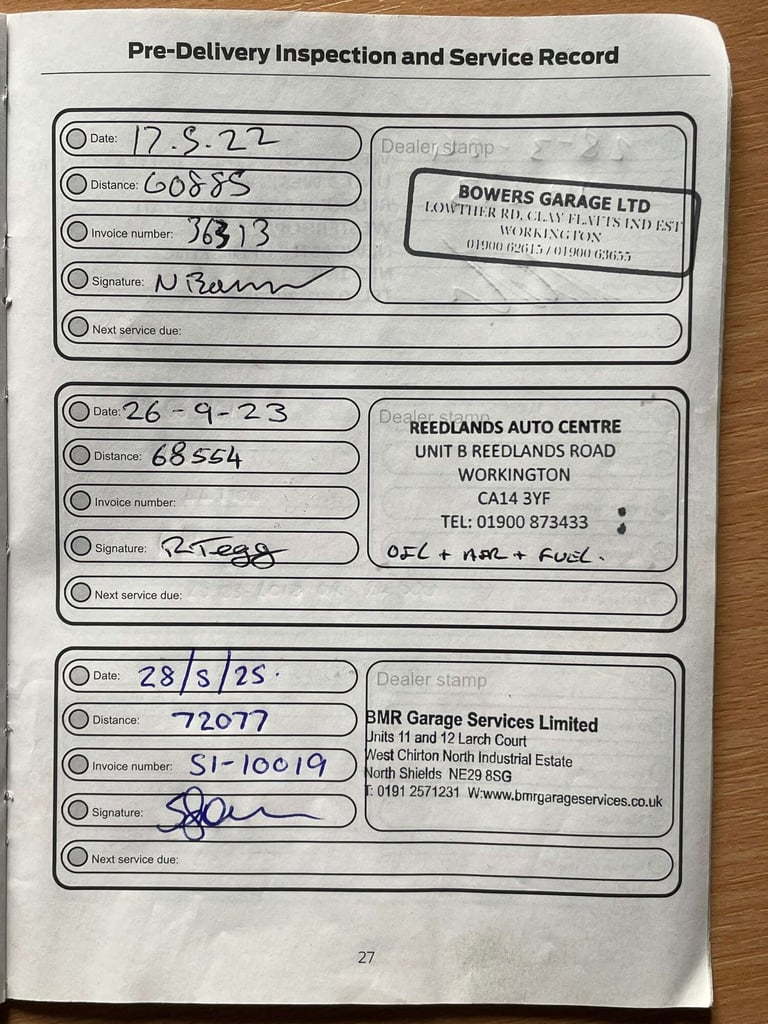 Pre-Delivery Inspection and Service Record
Date: 17.5.22
Distance: 60885
Invoice number: 36313
Signature: N
Next service due:
Dealer stamp
BOWERS GARAGE LTD
LOWTHER RD, CLAY FLATTS IND EST
WORKINGTON
01900 62615 / 01900 63655
Date: 26-9-23
Distance: 68554
Invoice number:
Signature: R Tegg
Next service due:
Dealer stamp
REEDLANDS AUTO CENTRE
UNIT B REEDLANDS ROAD
WORKINGTON
CA14 3YF
TEL: 01900 873433
OIL + AIR + FUEL.
Date: 28/5/25.
Distance: 72077
Invoice number: SI-10019
Signature:
Next service due:
Dealer stamp
BMR Garage Services Limited
Units 11 and 12 Larch Court
West Chirton North Industrial Estate
North Shields NE29 8SG
T: 0191 2571231 W:www.bmrgarageservices.co.uk
27